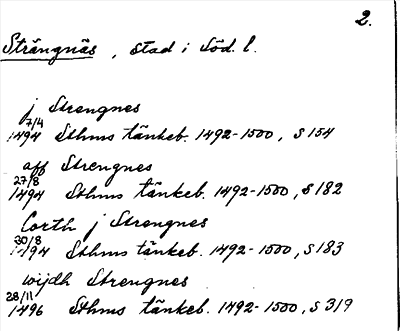 2.
Strängnäs, stad i Söd. l.
j Strengnes
7/4
1494 Sthms tänkeb. 1492-1500, s 154
aff Strengnes
27/8
1494 Sthms tänkeb. 1492-1500, s 182
Corth j Strengnes
30/8
1494 Sthms tänkeb. 1492-1500, s 183
wijdh Strengnes
28/11
1496 Sthms tänkeb. 1492-1500, s 319